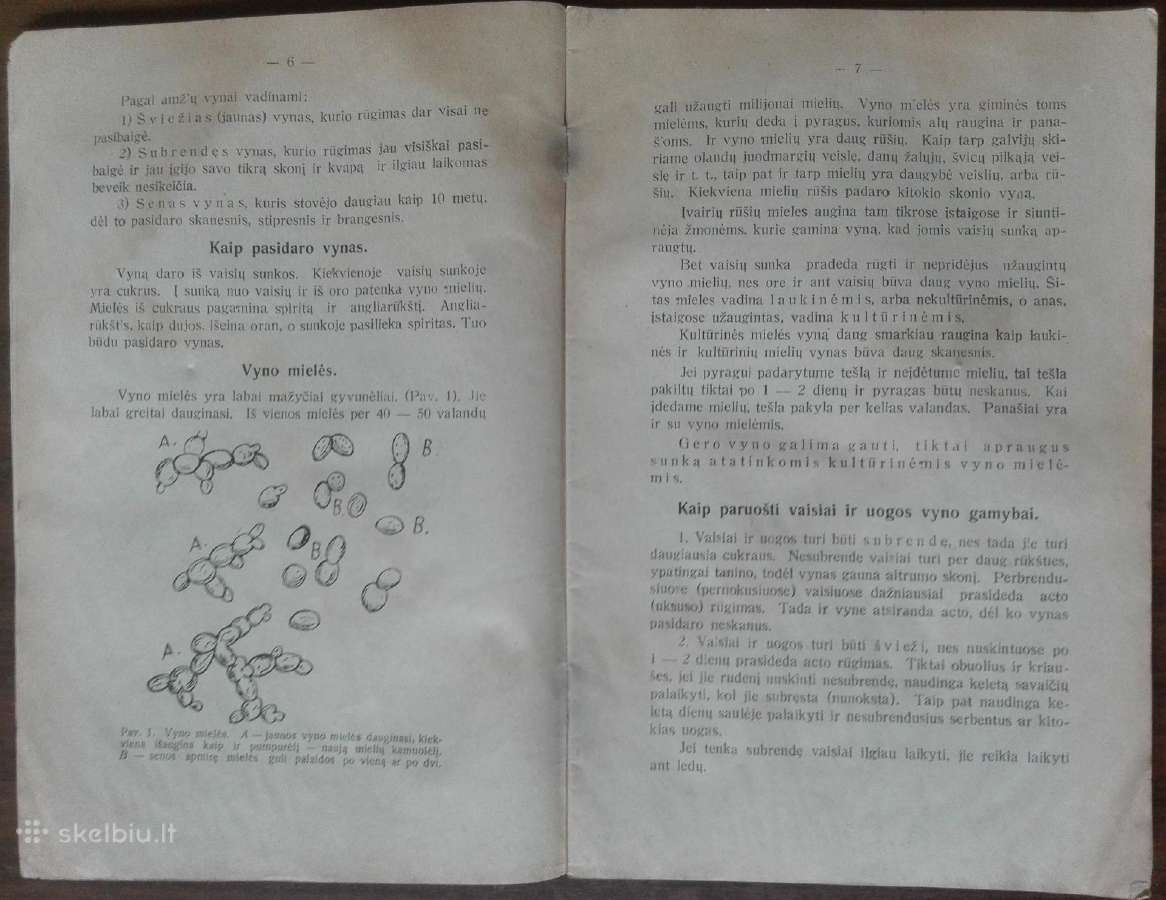 — 6 —
Pagal amž'ų vynai vadinami:
1) Šviežias (jaunas) vynas, kurio rūgimas dar visai ne
pasibaigė.
2) Subrendęs vynas, kurio rūgimas jau visiškai pasi-
baigė ir jau įgijo savo tikrą skonį ir kvapą ir ilgiau laikomas
beveik nesikeičia.
3) Senas vynas, kuris stovėjo daugiau kaip 10 metų,
dėl to pasidaro skanesnis, stipresnis ir brangesnis.
Kaip pasidaro vynas.
Vyną daro iš vaisių sunkos. Kiekvienoje vaisių sunkoje
yra cukrus. Į sunką nuo vaisių ir iš oro patenka vyno mielių.
Mielės iš cukraus pagamina spiritą ir angliarūkštį. Anglia-
rūkšt's, kaip dujos, išeina oran, o sunkoje pasilieka spiritas. Tuo
būdu pasidaro vynas.
Vyno mielės.
Vyno mielės yra labai mažyčiai gyvunėliai. (Pav. 1). Jie
labai greitai dauginasi. Iš vienos mielės per 40 — 50 valandų
A.
B.
B.
B.
A.
B
A.
Pav. 1. Vyno mielės. A — jaunos vyno mielės dauginasi, kiek-
viena išaugina kaip ir pumpurėlį — naują mielių kamuolėlį.
B — senos aprimę mielės guli palaidos po vieną ar po dvi.
— 7 —
gali užaugti milijonai mielių. Vyno m'elės yra giminės toms
mielėms, kurių deda į pyragus, kuriomis alų raugina ir pana-
š'oms. Ir vyno mielių yra daug rūšių. Kaip tarp galvijų ski-
riame olandų juodmargių veislę, danų žalųjų, švicų pilkąją vei-
slę ir t. t., taip pat ir tarp mielių yra daugybė veislių, arba rū-
šių. Kiekviena mielių rūšis padaro kitokio skonio vyną.
Įvairių rūšių mieles augina tam tikrose įstaigose ir siunti-
nėja žmonėms, kurie gamina vyną, kad jomis vaisių sunką ap-
raugtų.
Bet vaisių sunka pradeda rūgti ir nepridėjus užaugintų
vyno mielių, nes ore ir ant vaisių būva daug vyno mielių. Ši-
tas mieles vadina laukinėmis, arba nekultūrinėmis, o anas,
įstaigose užaugintas, vadina kultūrinėmis.
Kultūrinės mielės vyną daug smarkiau raugina kaip lauki-
nės ir kultūrinių mielių vynas būva daug skanesnis.
Jei pyragui padarytume tešlą ir neįdėtume mielių, tai tešla
pakiltų tiktai po 1 — 2 dienų ir pyragas būtų neskanus. Kai
įdedame mielių, tešla pakyla per kelias valandas. Panašiai yra
ir su vyno mielėmis.
Gero vyno galima gauti, tiktai apraugus
sunką atatinkomis kultūrinėmis vyno mielė-
mis.
Kaip paruošti vaisiai ir uogos vyno gamybai.
1. Vaisiai ir uogos turi būti subrendę, nes tada jie turi
daugiausia cukraus. Nesubrendę vaisiai turi per daug rūkšties,
ypatingai tanino, todėl vynas gauna aitrumo skonį. Perbrendu-
siuose (pernokusiuose) vaisiuose dažniausiai prasideda acto
(uksuso) rūgimas. Tada ir vyne atsiranda acto, dėl ko vynas
pasidaro neskanus.
2. Vaisiai ir uogos turi būti švieži, nes nuskintuose po
1 — 2 dienų prasideda acto rūgimas. Tiktai obuolius ir kriau-
šes, jei jie rudenį nuskinti nesubrendę, naudinga keletą savaičių
palaikyti, kol jie subręsta (nunoksta). Taip pat naudinga ke-
letą dienų saulėje palaikyti ir nesubrendusius serbentus ar kito-
kias uogas.
Jei tenka subrendę vaisiai ilgiau laikyti, jie reikia laikyti
ant ledų.
skelbiu.lt